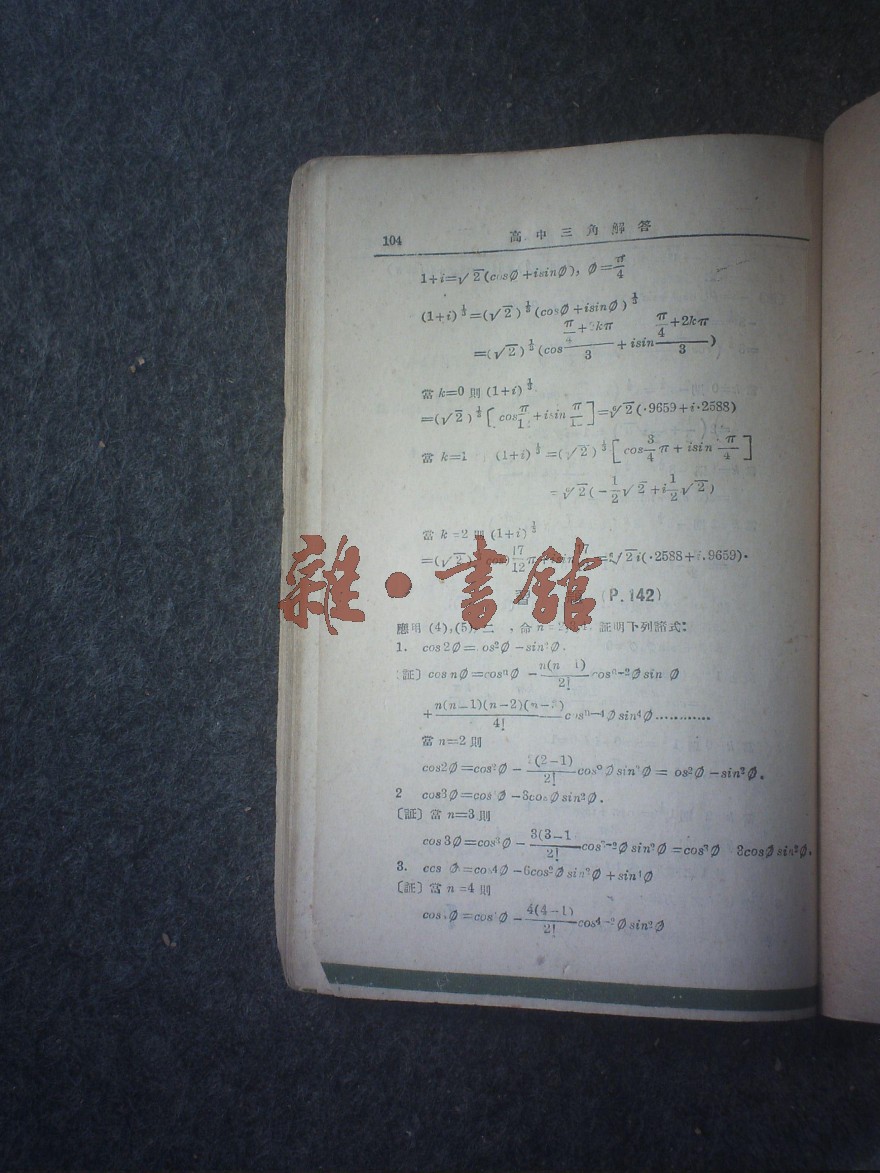 104 高中三角解答
1+i=√2(cosØ+isinØ), Ø=π/4
(1+i)^⅓=(√2)^⅓(cosØ+isinØ)^⅓
=(√2)^⅓(cos (π/4+2kπ)/3 + isin (π/4+2kπ)/3)
當 k=0 則 (1+i)^⅓
=(√2)^⅓[cos π/1 + isin π/1]=⁶√2(·9659+i·2588)
當 k=1 (1+i)^⅓=(√2)^⅓[cos 3/4 π+isin π/4]
=⁶√2(-1/2 √2+i 1/2 √2)
當 k=2 則 (1+i)^⅓
=(√2) 17/12 π =⁶√2i(·2588+i.9659)·
雜·書館
(P.142)
應用 (4),(5)二 ,命 n=2, 証明下列諸式:
1. cos2Ø= os²Ø-sin²Ø.
〔証〕 cos nØ=cosⁿØ - n(n-1)/2! cosⁿ⁻²Ø sin Ø
+ n(n-1)(n-2)(n-3)/4! cosⁿ⁻⁴Ø sin⁴Ø…………
當 n=2 則
cos2Ø=cos²Ø - 2(2-1)/2! cos⁰Ø sin²Ø= os²Ø-sin²Ø.
2 cos3Ø=cos³Ø-3cosØsin²Ø.
〔証〕當 n=3 則
cos3Ø=cos³Ø - 3(3-1/2! cos³⁻²Ø sin²Ø=cos³Ø 3cosØsin²Ø.
3. cos Ø=cos4Ø-6cos²Øsin²Ø+sin⁴Ø
〔証〕當 n=4 則
cos Ø=cos⁴Ø - 4(4-1)/2! cos⁴⁻²Øsin²Ø